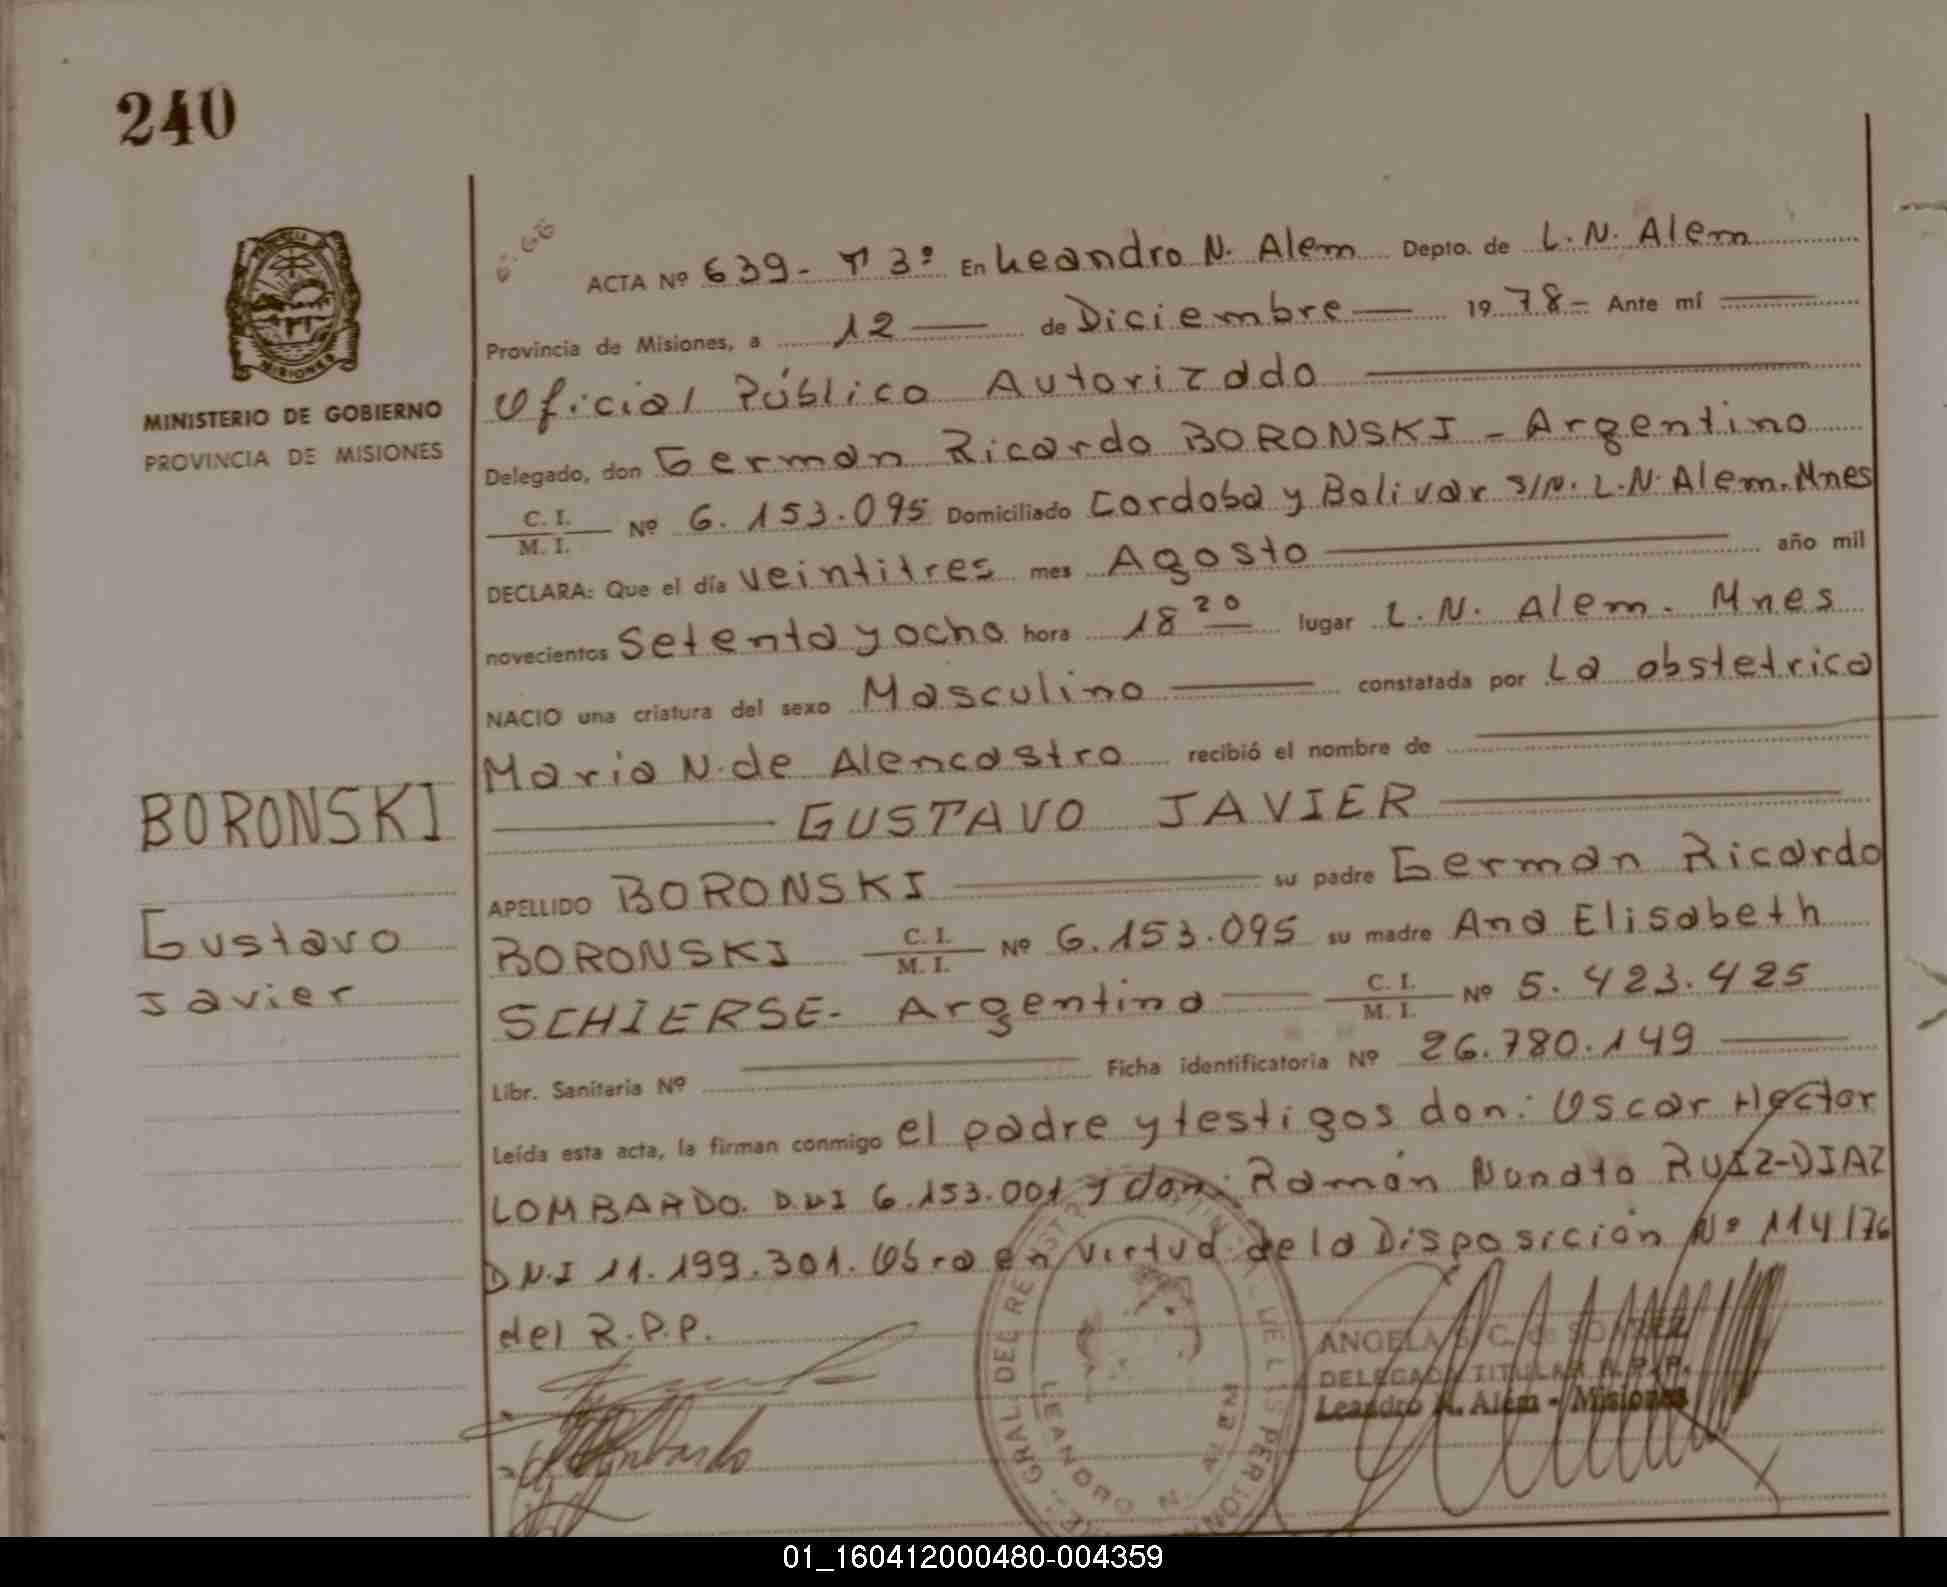 240
ACTA Nº 639- Tº 3º En Leandro N. Alem Depto. de L. N. Alem
Provincia de Misiones, a 12 de Diciembre 1978- Ante mí
Oficial Público Autorizado
MINISTERIO DE GOBIERNO
PROVINCIA DE MISIONES
Delegado, don German Ricardo BORONSKI - Argentino
C. I.
M. I. Nº 6.153.095 Domiciliado Cordoba y Bolivar S/N. L.N. Alem. Mnes
DECLARA: Que el día veintitres mes Agosto año mil
novecientos Setenta y ocho hora 18 20 lugar L. N. Alem. Mnes
NACIO una criatura del sexo Masculino constatada por La obstetrica
Maria N. de Alencastro recibió el nombre de
GUSTAVO JAVIER
BORONSKI
Gustavo
Javier
APELLIDO BORONSKI su padre German Ricardo
BORONSKI C. I.
M. I. Nº 6.153.095 su madre Ana Elisabeth
SCHIERSE- Argentina C. I.
M. I. Nº 5.423.425
Libr. Sanitaria Nº Ficha identificatoria Nº 26.780.149
Leída esta acta, la firman conmigo el padre y testigos don: Oscar Hector
LOMBARDO. D.N.I 6.153.001 y don: Ramón Nonato RUIZ-DIAZ
D.N.I 11.199.301. Obra en virtud de la Disposición Nº 114/76
del R.P.P.
ANGELA S. C. de
DELEGADA TITULAR R. P. P.
Leandro N. Alem - Misiones
GRAL. DEL REGISTRO
LEANDRO N. ALEM
MISIONES
01_160412000480-004359